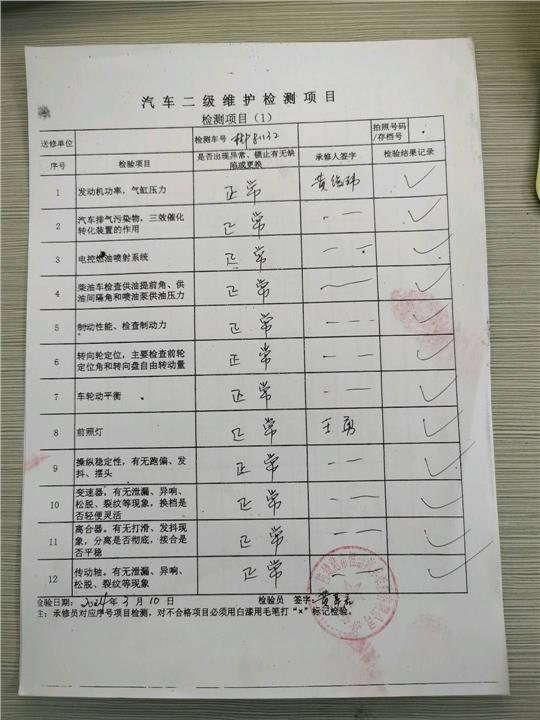 汽车二级维护检测项目
检测项目（1）
送修单位 检测车号 81132 拍照号码/存档号
序号 检验项目 是否出现异常、锁止有无缺陷或更换 承修人签字 检验结果记录
1 发动机功率，气缸压力 正常 ✓
2 汽车排气污染物，三效催化转化装置的作用 正常 ✓
3 电控燃油喷射系统 正常 ✓
4 柴油车检查供油提前角、供油间隔角和喷油泵供油压力 正常 ✓
5 制动性能、检查制动力 正常 ✓
6 转向轮定位，主要检查前轮定位角和转向盘自由转动量 正常 ✓
7 车轮动平衡 正常 ✓
8 前照灯 正常 王勇 ✓
9 操纵稳定性，有无跑偏、发抖、摆头 正常 ✓
10 变速器，有无泄漏、异响、松脱、裂纹等现象，换档是否轻便灵活 正常 ✓
11 离合器。有无打滑、发抖现象，分离是否彻底，接合是否平稳 正常 ✓
12 传动轴。有无泄漏、异响、松脱、裂纹等现象 正常 ✓
检验日期：2024年3月10日 检验员 签字：
注：承修员对应序号项目检测，对不合格项目必须用白漆用毛笔打“×”标记检验。